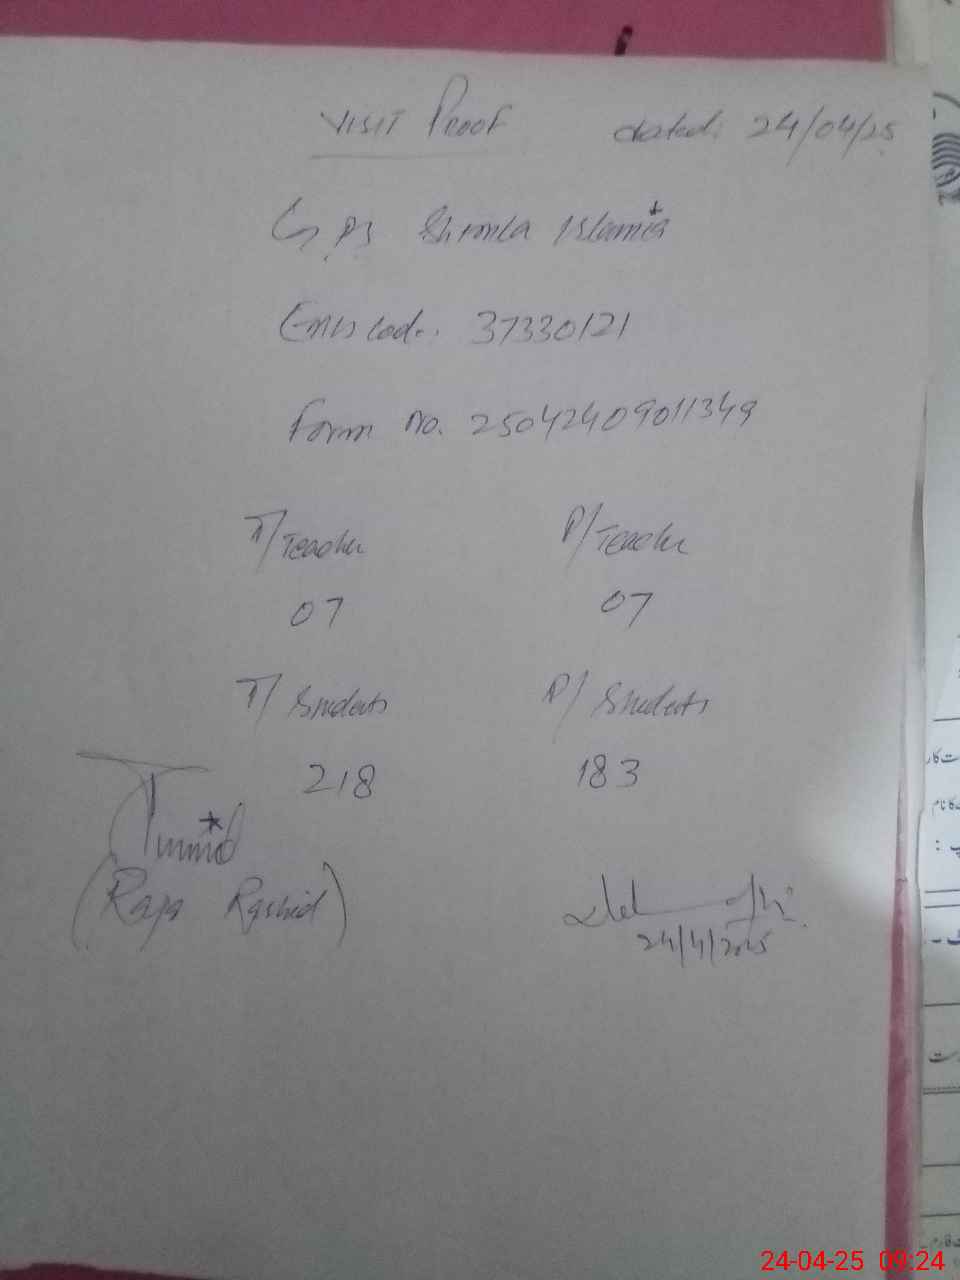 VISIT Proof dated: 24/04/25
G PS Islamia
Emis code: 37330121
Form no. 25042409011349
T/Teacher P/Teacher
07 07
T/Students P/Students
218 183
(Raja Rashid)
24/4/2025
24-04-25 09:24